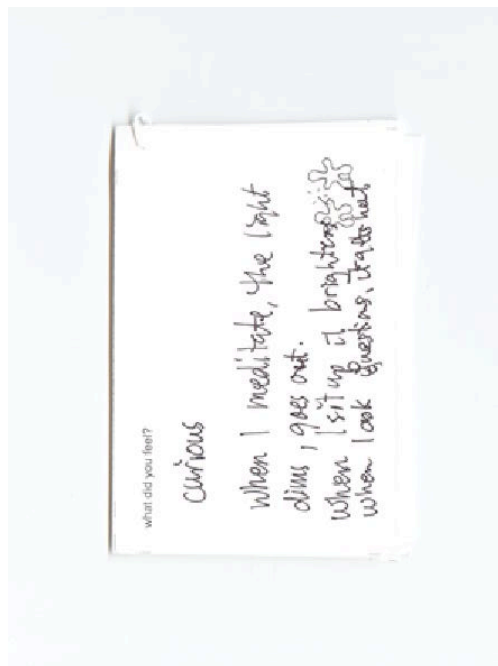 what did you feel?
curious
when I meditate, the light
dims, goes out.
When I sit up it brightens
when I ask questions,